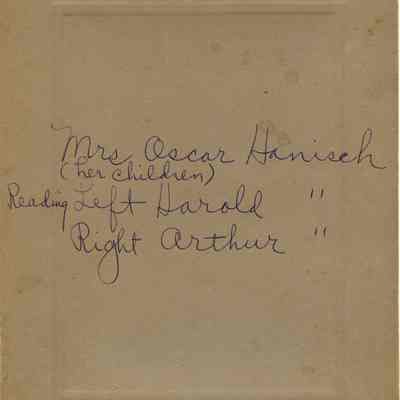 Mrs Oscar Hanisch
(her children)
Reading Left Harold "
Right Arthur "